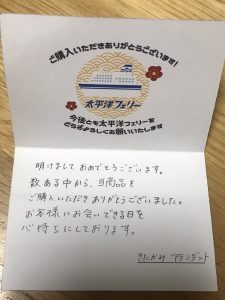 ご購入いただきありがとうございます!
太平洋フェリー
今後とも太平洋フェリーを
どうぞよろしくお願いいたします
明けまして おめでとうございます。
数ある中から、当商品を
ご購入いただきありがとうございました。
お客様にお会いできる日を
心待ちにしております。
きたかみ アテンダント